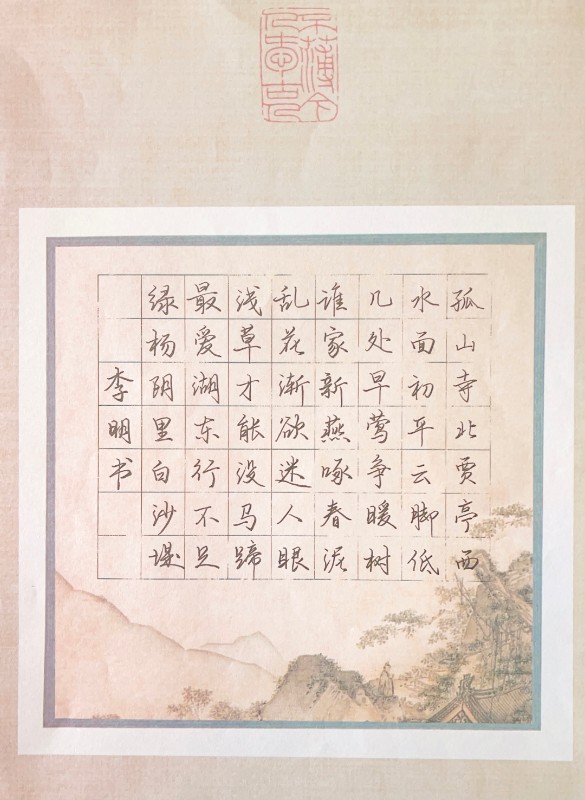 孤山寺北贾亭西
水面初平云脚低
几处早莺争暖树
谁家新燕啄春泥
乱花渐欲迷人眼
浅草才能没马蹄
最爱湖东行不足
绿杨阴里白沙堤
李明书